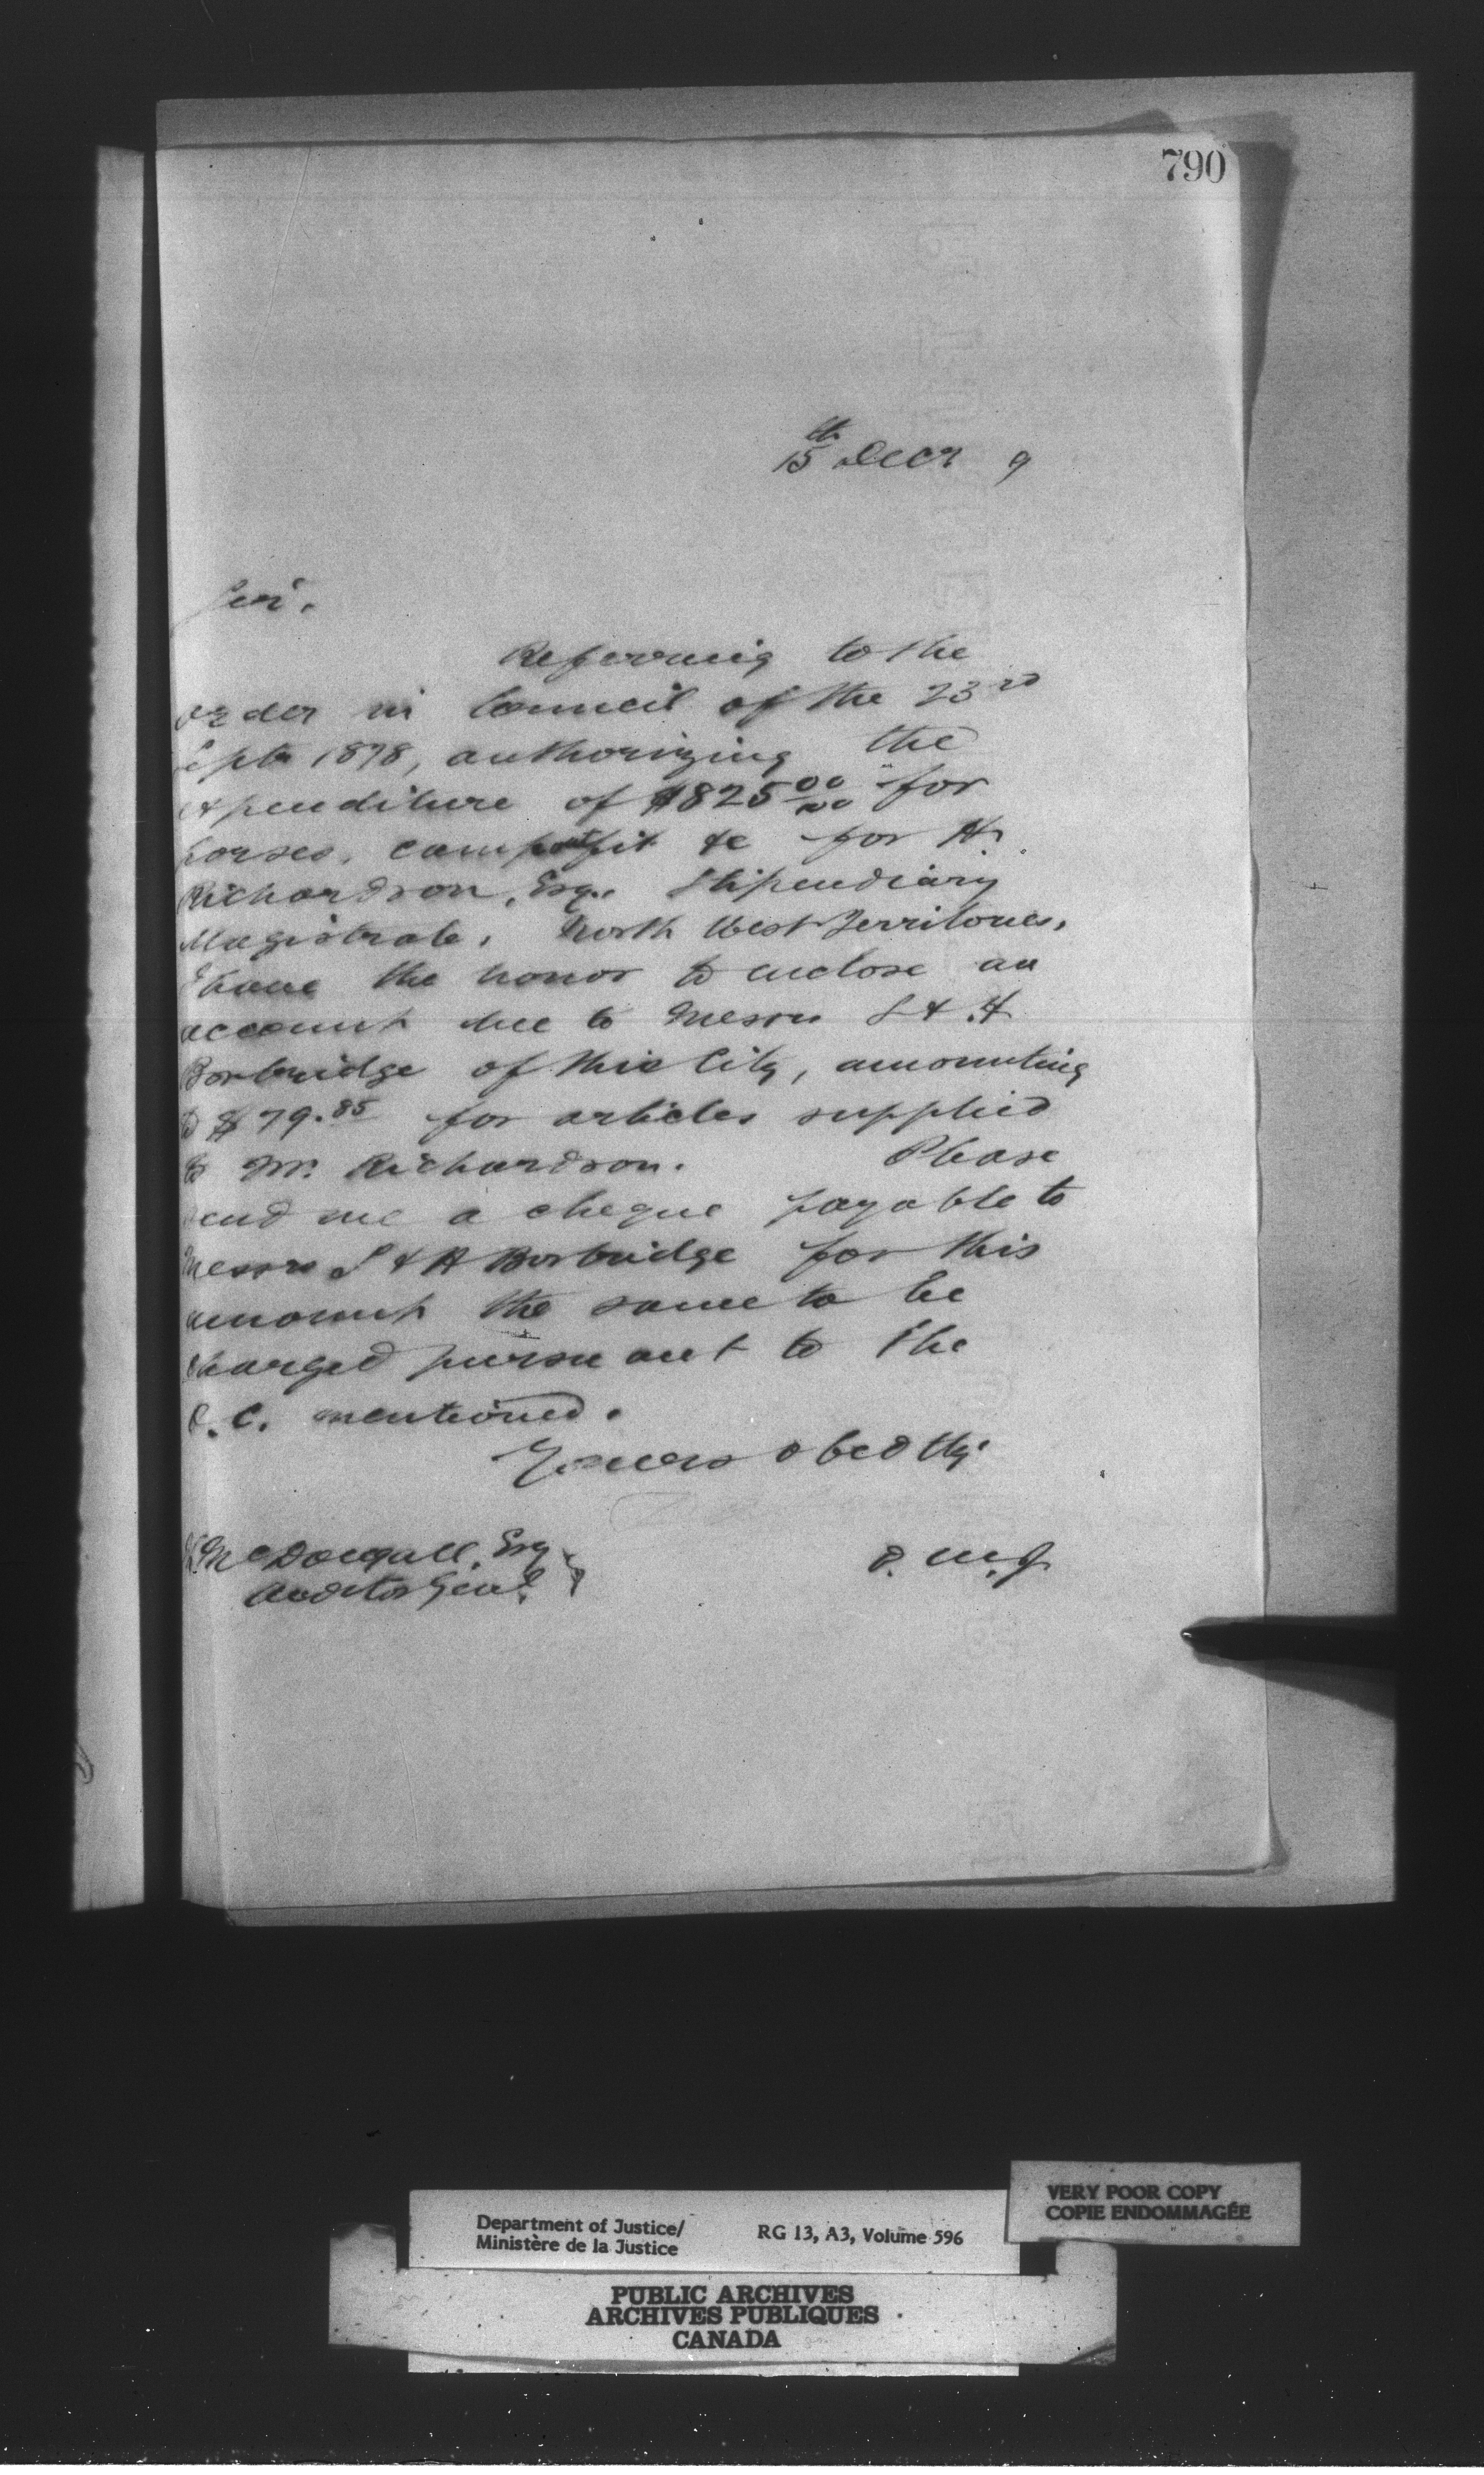 790
15th Decr 9
Sir.
Referring to the
order in Council of the 23rd
Septr 1878, authorizing the
expenditure of $825 00/00 for
horses, camp outfit &c for H.
Richardson, Esq. Stipendiary
Magistrate, North West Territories,
I have the honor to enclose an
account due to Messrs S & H
Borbridge of this City, amounting
to $79.85 for articles supplied
to Mr. Richardson. Please
send me a cheque payable to
Messrs S & H Borbridge for this
amount the same to be
charged pursuant to the
O.C. mentioned.
Yours obedtly
McDougall, Esq
Auditor Genl.
D. M. J.
Department of Justice/
Ministère de la Justice
RG 13, A3, Volume 596
VERY POOR COPY
COPIE ENDOMMAGÉE
PUBLIC ARCHIVES
ARCHIVES PUBLIQUES
CANADA